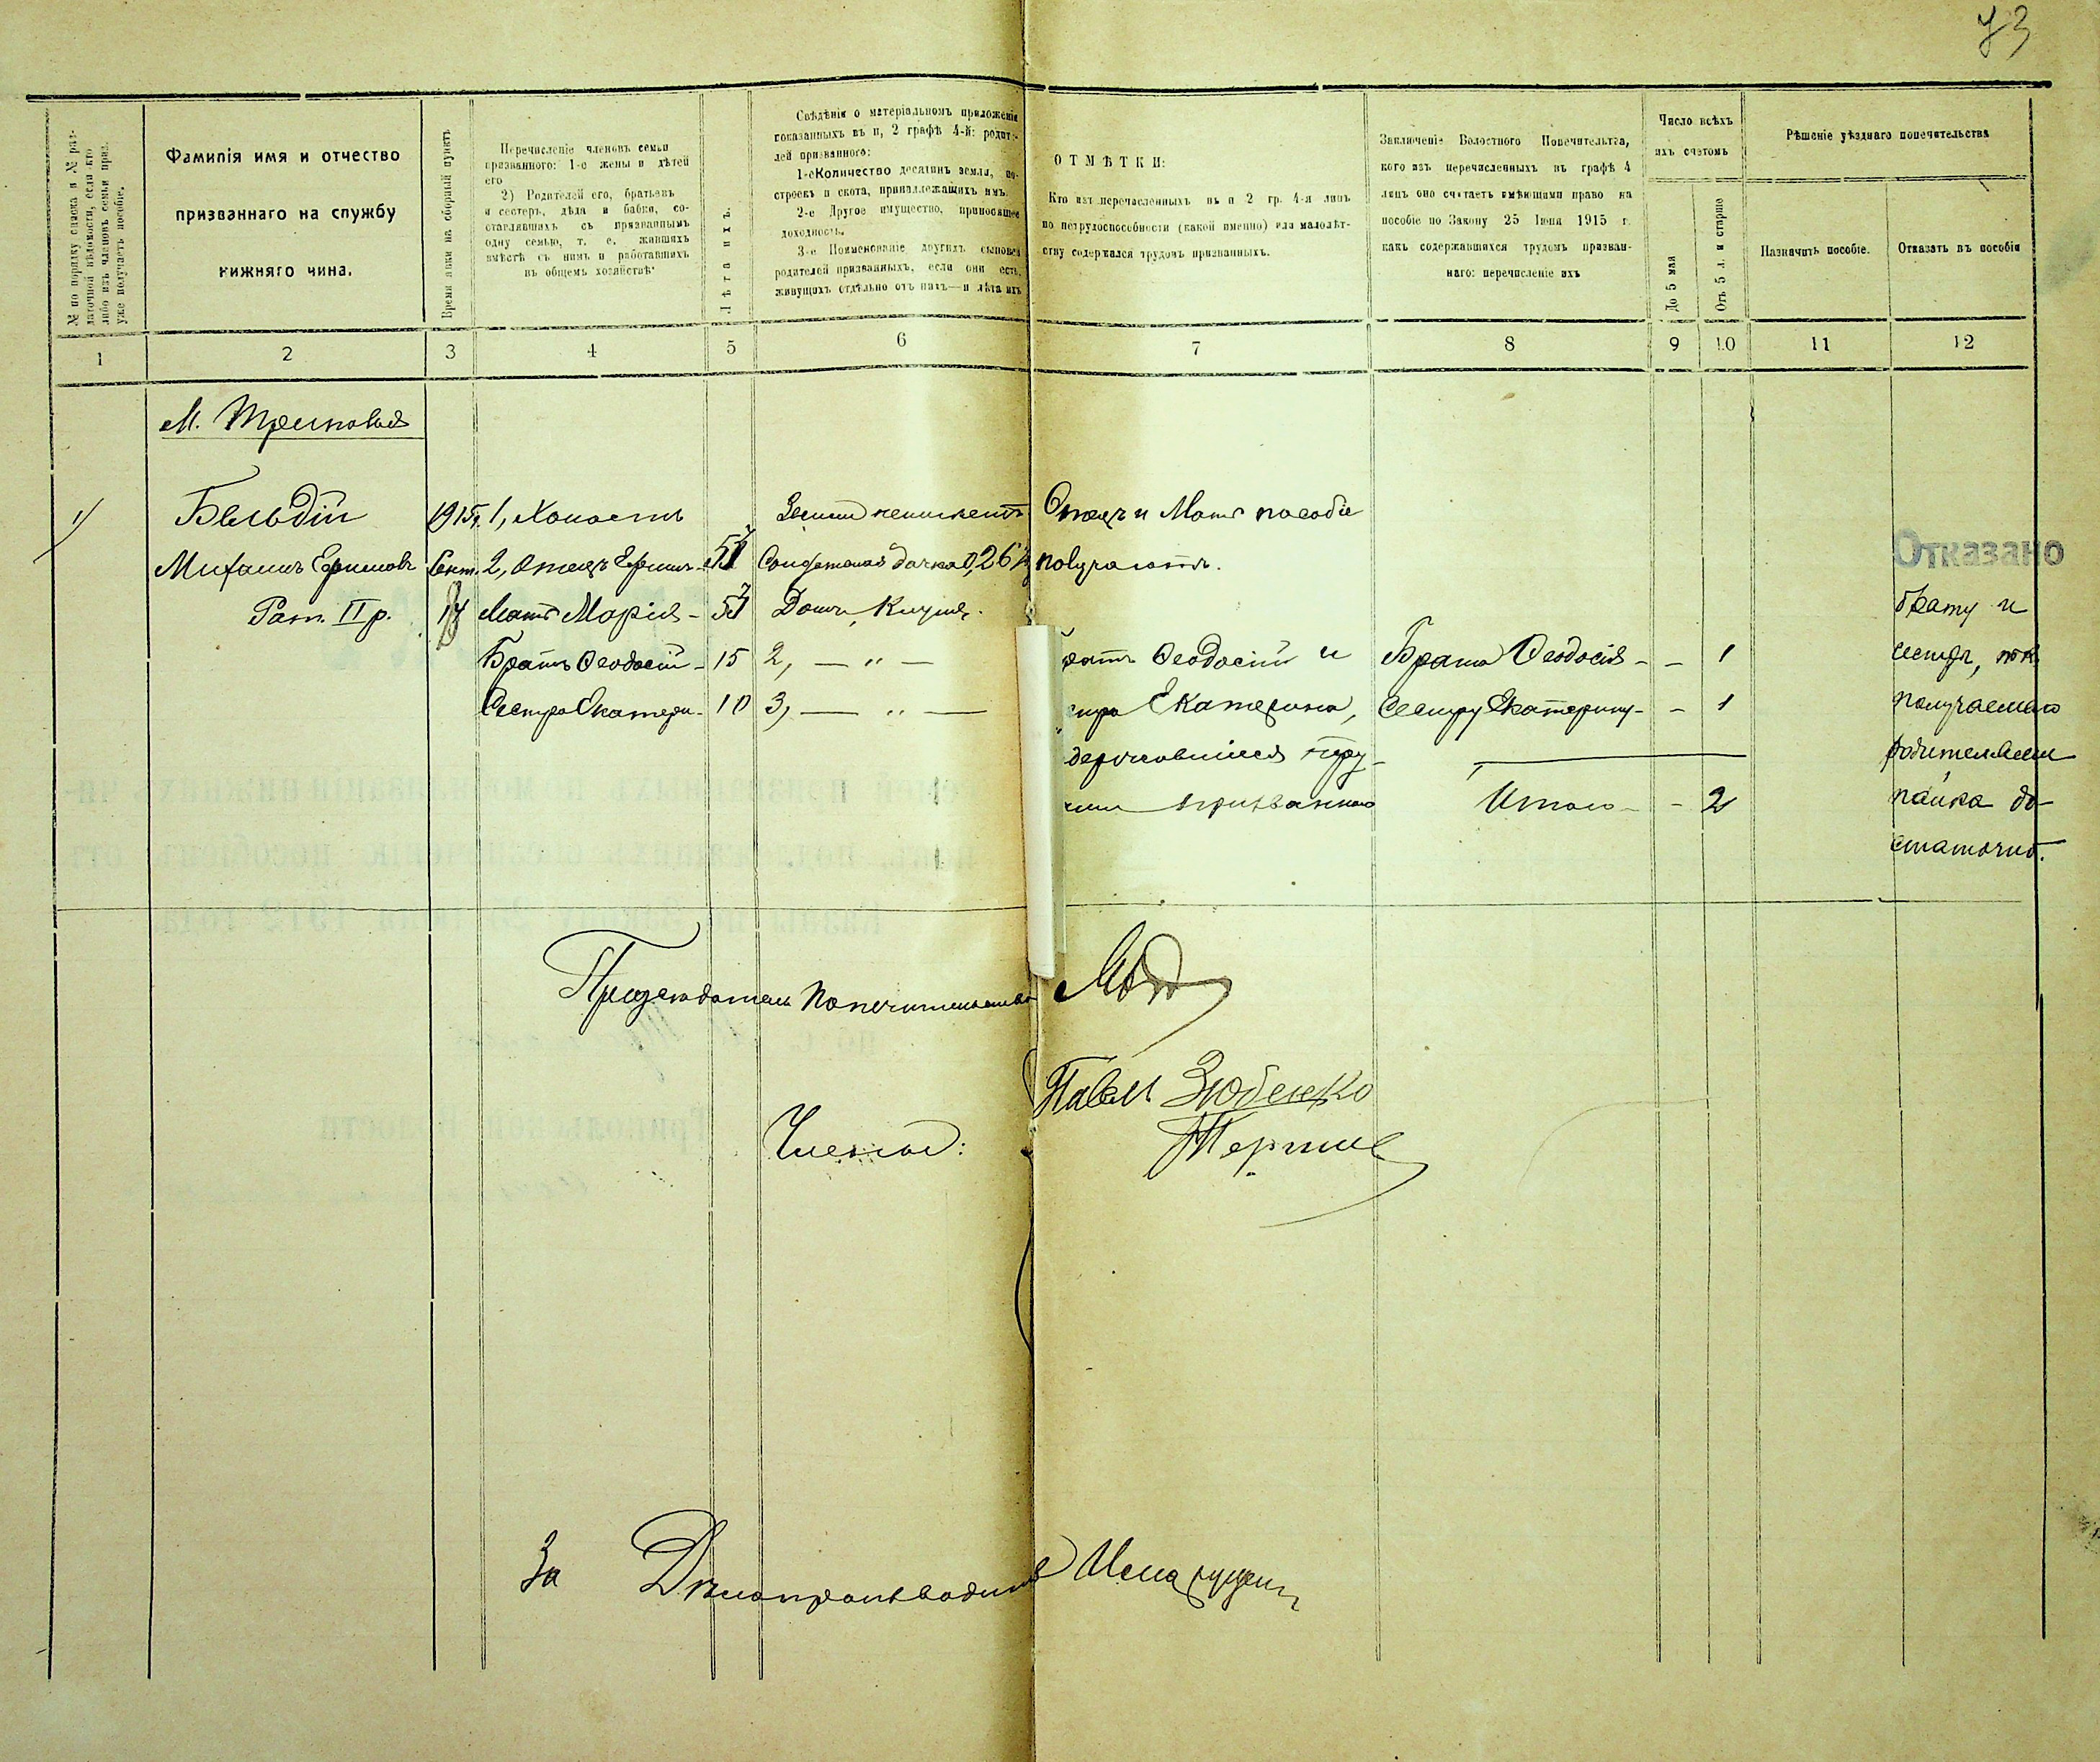 73
№ по порядку списка и № раз-
даточной вѣдомости, если кто
либо изъ членовъ семьи приз.
уже получаетъ пособіе.
Фамилія имя и отчество
призваннаго на службу
нижняго чина.
Время явки на сборный пунктъ
Перечисленіе членовъ семьи
призваннаго: 1-е жены и дѣтей
его
2) Родителей его, братьевъ
и сестеръ, дѣда и бабки, со-
ставлявшихъ съ призваннымъ
одну семью, т. е. жившихъ
вмѣстѣ съ нимъ и работавшихъ
въ общемъ хозяйствѣ
Лѣта ихъ.
Свѣдѣнія о матеріальномъ приложеніи
показанныхъ въ п, 2 графѣ 4-й: родите-
лей призваннаго:
1-е Количество десятинъ земли, по-
строекъ и скота, принадлежащихъ имъ.
2-е Другое имущество, приносящее
доходность.
3-е Поименованіе другихъ сыновей
родителей призванныхъ, если они есть,
живущихъ отдѣльно отъ нихъ—и лѣта ихъ
ОТМѢТКИ:
Кто изъ перечисленныхъ въ п 2 гр. 4-я лицъ
по нетрудоспособности (какой именно) или малолѣт-
ству содержался трудомъ призванныхъ.
Заключеніе Волостного Попечительтва,
кого изъ перечисленныхъ въ графѣ 4
лицъ оно считаетъ имѣющими право на
пособіе по Закону 25 Іюня 1915 г.
какъ содержавшихся трудомъ призван-
наго: перечисленіе ихъ
Число всѣхъ
ихъ счетомъ
До 5 мая
Отъ 5 л. и старше
Рѣшеніе уѣзднаго попечительства
Назначить пособіе.
Отказать въ пособіи
1 2 3 4 5 6 7 8 9 10 11 12
М. Триполья
1/ Бельдій 1915г. 1, Холостъ Земли неимѣетъ. Отецъ и Мать пособіе
Михаилъ Ефимовъ Сент. 2, Отецъ Ефимъ - Усадебная дачка 0,26 получаютъ. Отказано
Рат. II р. Мать Марія - Домъ, Клуня. брату и
Братъ Ѳеодосій - 15 2, — " — Братъ Ѳеодосій и Брата Ѳеодосія - - 1 сестрѣ, т.к.
Сестра Екатери. - 10 3, — " — Екатерина, Сестру Екатерину - - 1 получаемаго
державшіеся тру- родителями
призваннаго Итого - - 2 пайка до-
статочно.
Предсѣдатель Попечительства
Павелъ Зюбенко
Члены:
За Дѣлопроизводителя